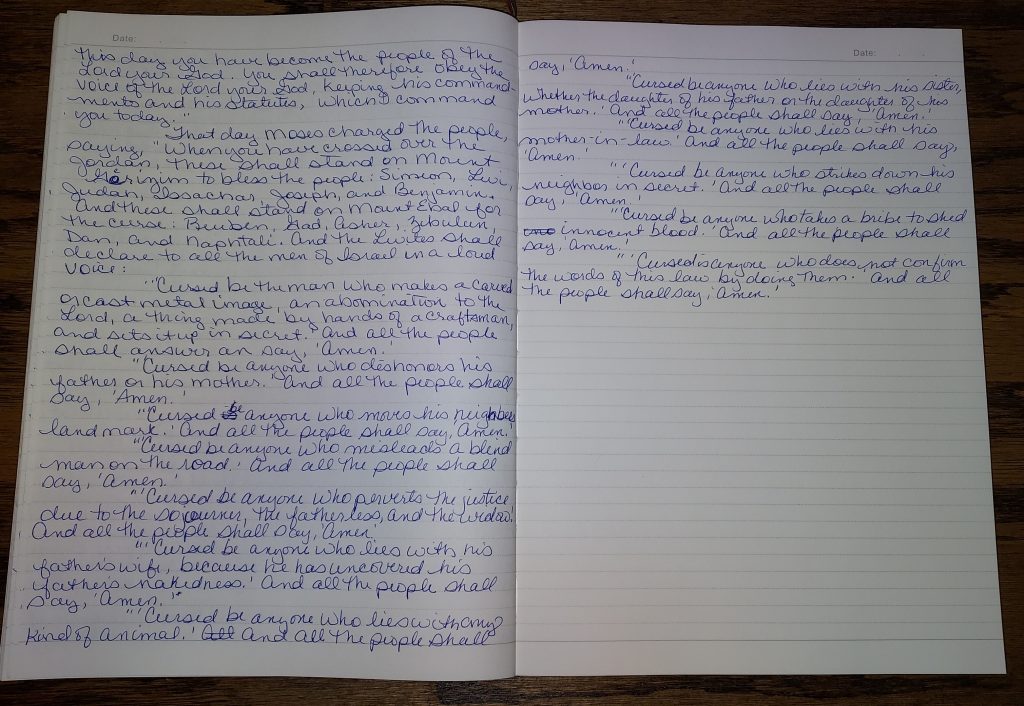 Date:
this day you have become the people of the
Lord your God. You shall therefore obey the
voice of the Lord your God, keeping his command-
ments and his statutes, which I command
you today."
That day Moses charged the people,
saying, "When you have crossed over the
Jordan, these shall stand on Mount
Gerizim to bless the people: Simeon, Levi,
Judah, Issachar, Joseph, and Benjamin.
And these shall stand on Mount Ebal for
the curse: Reuben, Gad, Asher, Zebulun,
Dan, and Naphtali. And the Levites shall
declare to all the men of Israel in a loud
voice:
"'Cursed be the man who makes a carved
or cast metal image, an abomination to the
Lord, a thing made by hands of a craftsman,
and sets it up in secret.' And all the people
shall answer an say, 'Amen.'
"'Cursed be anyone who dishonors his
father or his mother.' And all the people shall
say, 'Amen.'
"'Cursed be anyone who moves his neighbors
landmark.' And all the people shall say, 'Amen.'
"'Cursed be anyone who misleads a blind
man on the road.' And all the people shall
say, 'Amen.'
"'Cursed be anyone who perverts the justice
due to the sojourner, the fatherless, and the widow.'
And all the people shall say, 'Amen.'
"'Cursed be anyone who lies with his
father's wife, because he has uncovered his
father's nakedness.' And all the people shall
say, 'Amen.'"
"'Cursed be anyone who lies with any
kind of animal.' And all the people shall
Date:
say, 'Amen.'
"'Cursed be anyone who lies with his sister,
whether the daughter of his father or the daughter of his
mother.' And all the people shall say, 'Amen.'
"'Cursed be anyone who lies with his
mother-in-law.' And all the people shall say,
'Amen.'
"'Cursed be anyone who strikes down his
neighbor in secret.' And all the people shall
say, 'Amen.'
"'Cursed be anyone who takes a bribe to shed
innocent blood.' And all the people shall
say, 'Amen.'
"'Cursed is anyone who does not confirm
the words of this law by doing them.' And all
the people shall say, 'Amen.'